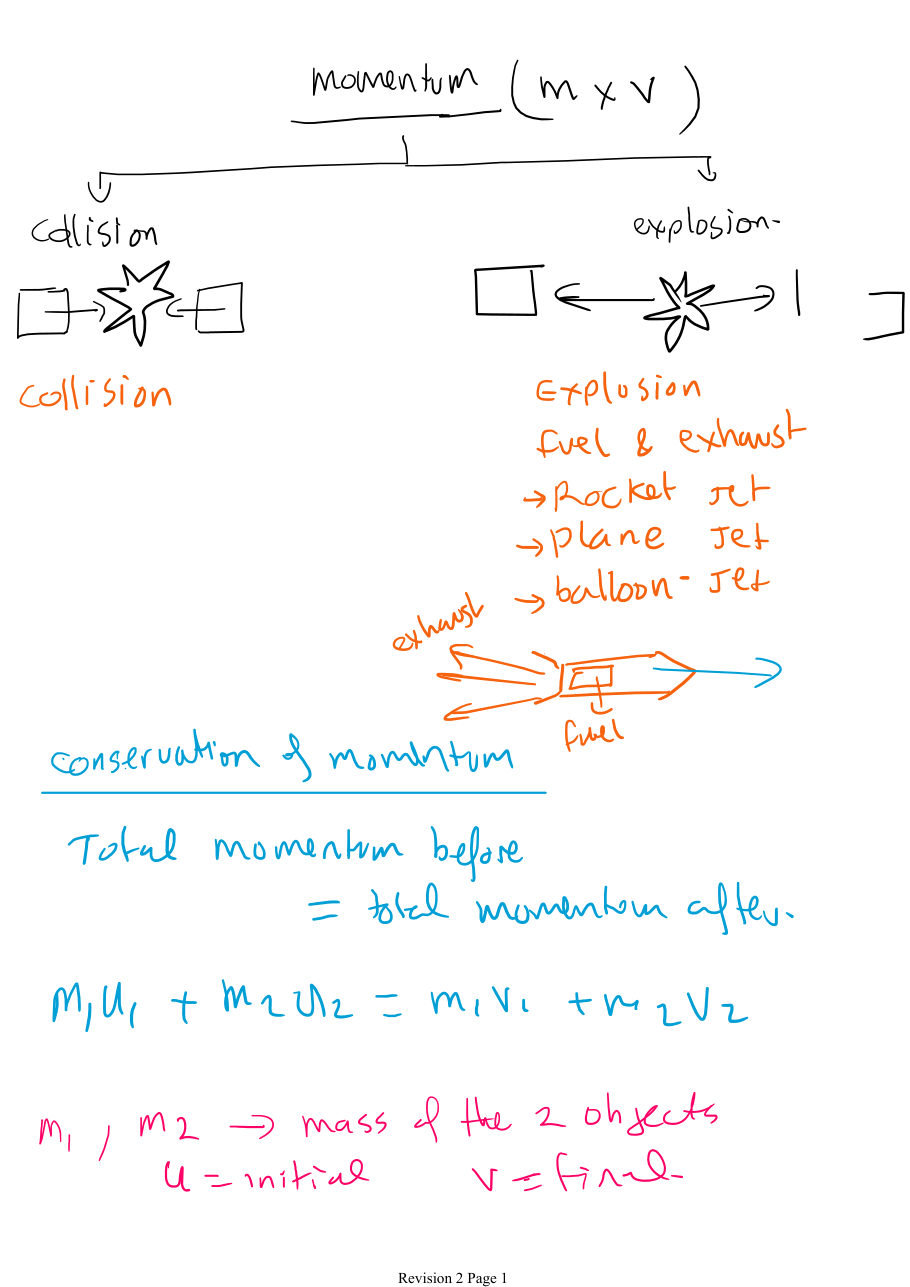 momentum (m x v)
collision
explosion-
collision
Explosion
fuel & exhaust
→ Rocket Jet
→ plane Jet
→ balloon- Jet
exhaust
fuel
conservation of momentum
Total momentum before
= total momentum after.
m₁u₁ + m₂u₂ = m₁v₁ + m₂v₂
m₁, m₂ → mass of the 2 objects
u = initial v = final
Revision 2 Page 1